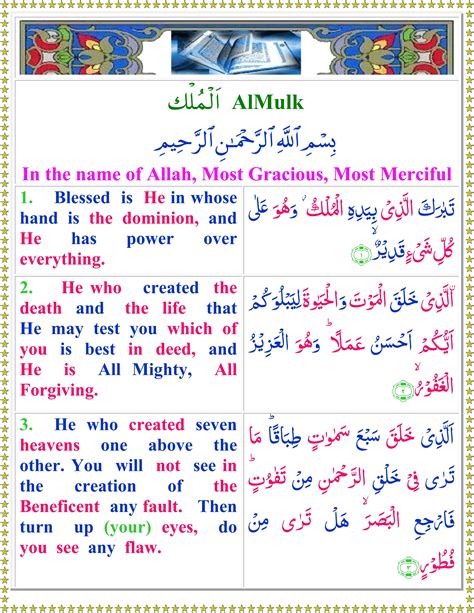 اَلْمُلْك AlMulk
بِسْمِ اللَّهِ الرَّحْمٰنِ الرَّحِيْمِ
In the name of Allah, Most Gracious, Most Merciful
1. Blessed is He in whose
hand is the dominion, and
He has power over
everything.
تَبٰرَكَ الَّذِىْ بِيَدِهِ الْمُلْكُ ۙ وَهُوَ عَلٰى
كُلِّ شَىْءٍ قَدِيْرُۙ ﴿١﴾
2. He who created the
death and the life that
He may test you which of
you is best in deed, and
He is All Mighty, All
Forgiving.
اۨلَّذِىْ خَلَقَ الْمَوْتَ وَالْحَيٰوةَ لِيَبْلُوَكُمْ
اَيُّكُمْ اَحْسَنُ عَمَلًا ؕ وَهُوَ الْعَزِيْزُ
الْغَفُوْرُۙ ﴿٢﴾
3. He who created seven
heavens one above the
other. You will not see in
the creation of the
Beneficent any fault. Then
turn up (your) eyes, do
you see any flaw.
الَّذِىْ خَلَقَ سَبْعَ سَمٰوٰتٍ طِبَاقًا ؕ مَا
تَرٰى فِىْ خَلْقِ الرَّحْمٰنِ مِنْ تَفٰوُتٍ ؕ
فَارْجِعِ الْبَصَرَ ۙ هَلْ تَرٰى مِنْ
فُطُوْرٍ ﴿٣﴾